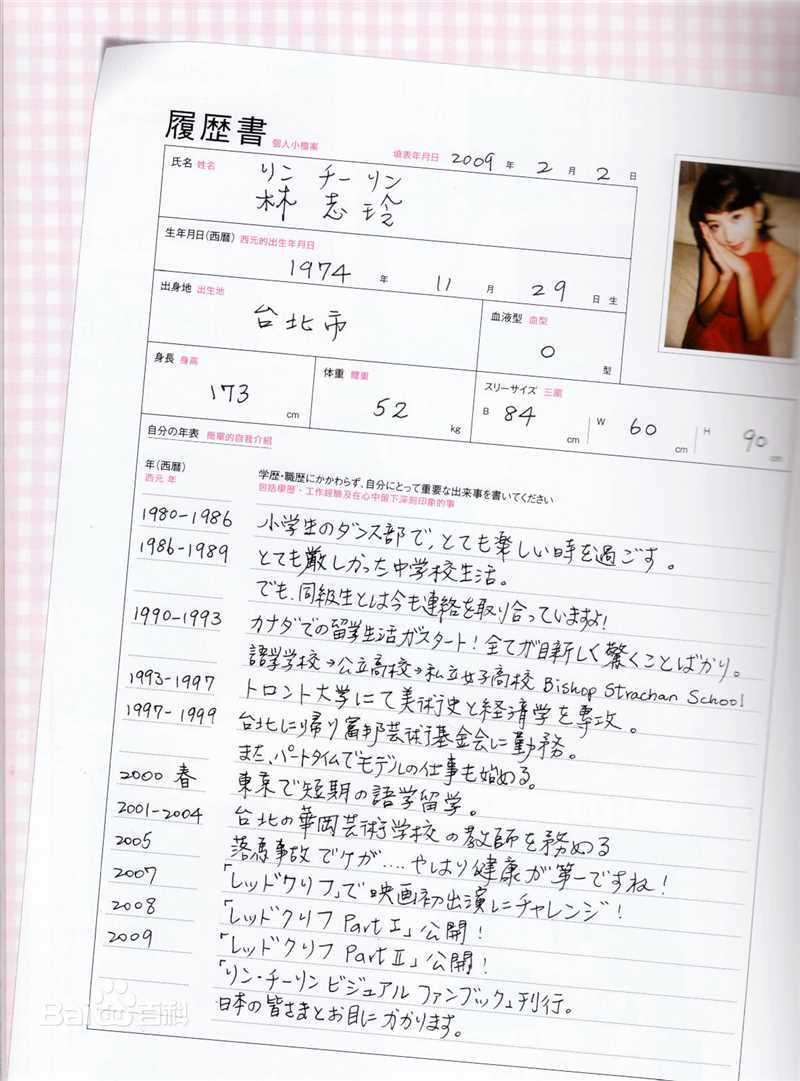 履歴書 個人小檔案
填表年月日 2009 年 2 月 2 日
氏名 姓名
リン チー リン
林 志 玲
生年月日(西暦) 西元的出生年月日
1974 年 11 月 29 日 生
出身地 出生地
台北市
血液型 血型
O 型
身長 身高
173 cm
体重 體重
52 kg
スリーサイズ 三圍
B 84 cm W 60 cm H 90 cm
自分の年表 簡單的自我介紹
年(西暦)
西元 年
学歴・職歴にかかわらず、自分にとって重要な出来事を書いてください
包括學歷、工作經驗及在心中留下深刻印象的事
1980-1986 小学生のダンス部で、とても楽しい時を過ごす。
1986-1989 とても厳しかった中学校生活。
でも、同級生とは今も連絡を取り合っていますよ!
1990-1993 カナダでの留学生活がスタート!全てが目新しく驚くことばかり。
語学学校→公立高校→私立女子高校 Bishop Strachan School
1993-1997 トロント大学にて美術史と経済学を専攻。
1997-1999 台北に帰り富邦芸術基金会に勤務。
また、パートタイムでモデルの仕事も始める。
2000 春 東京で短期の語学留学。
2001-2004 台北の華岡芸術学校の教師を務める
2005 落馬事故でケガ....やはり健康が第一ですね!
2007 「レッドクリフ」で映画初出演にチャレンジ!
2008 「レッドクリフ Part I」公開!
2009 「レッドクリフ Part II」公開!
「リン・チーリン ビジュアル ファンブック」刊行。
日本の皆さまとお目にかかります。
Bai 百科